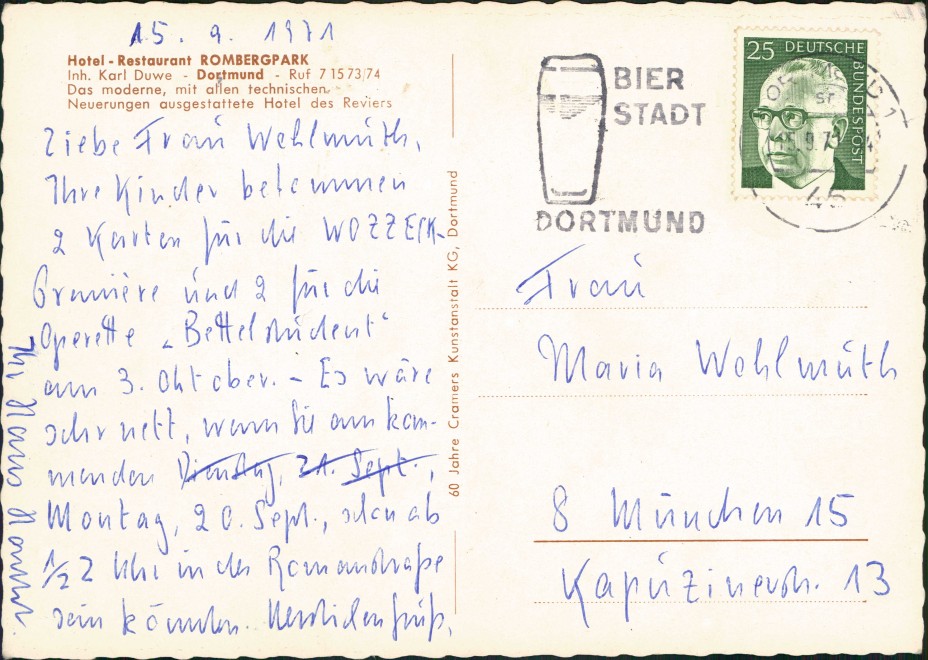 15. 9. 1971
Hotel-Restaurant ROMBERGPARK
Inh. Karl Duwe - Dortmund - Ruf 7 15 73/74
Das moderne, mit allen technischen
Neuerungen ausgestattete Hotel des Reviers
Liebe Frau Wohlmuth,
Ihre Kinder bekommen
2 Karten für die WOZZECK-
Première und 2 für die
Operette „Bettelstudent“
am 3. Oktober. – Es wäre
sehr nett, wenn Sie am kom-
menden Dienstag, 21. Sept.,
Montag, 20. Sept., schon ab
1/2 2 Uhr in der Romanstraße
sein könnten. Herzlichen Gruß,
Ihr Hans
60 Jahre Cramers Kunstanstalt KG, Dortmund
BIER
STADT
DORTMUND
25 DEUTSCHE
BUNDESPOST
46
Frau
Maria Wohlmuth
8 München 15
Kapuzinerstr. 13